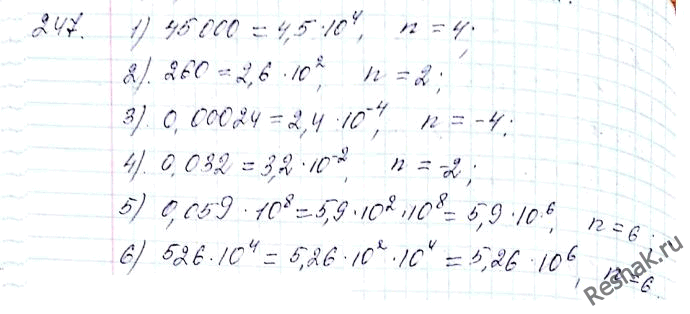 247. 1) 45000 = 4,5·10⁴, n = 4;
2). 260 = 2,6·10², n = 2;
3). 0,00024 = 2,4·10⁻⁴, n = -4;
4). 0,032 = 3,2·10⁻², n = -2;
5) 0,059·10⁸ = 5,9·10²·10⁸ = 5,9·10⁶, n = 6;
6) 526·10⁴ = 5,26·10²·10⁴ = 5,26·10⁶, n = 6.
Reshak.ru